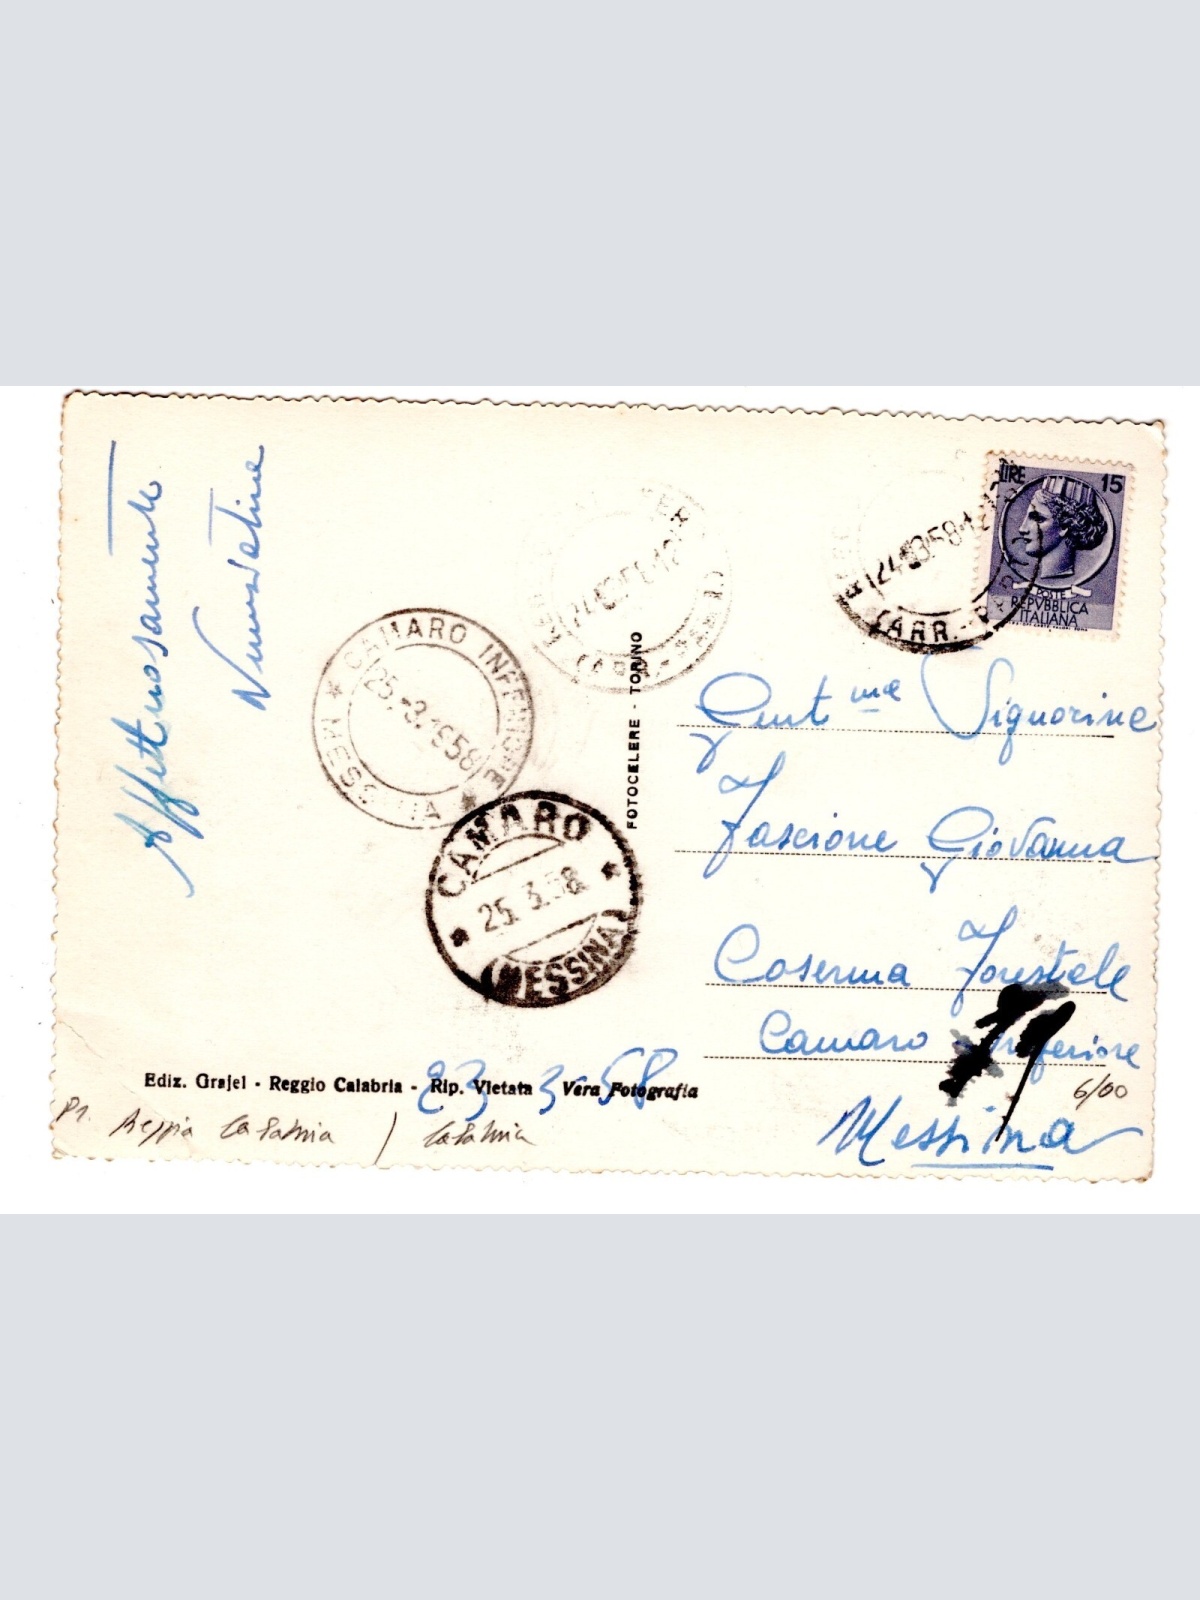 Affettuosamente
LIRE 15
POSTE
REPVBBLICA
ITALIANA
24.03.58.12
(ARR.-
CAMARO INFERIORE
25.-3.1958
MESSINA
CAMARO
25. 3.58
(MESSINA)
FOTOCELERE - TORINO
Gent ma Signorina
Fascione Giovanna
Caserma Forestale
Camaro - Inferiore
Messina
23 3 58
Ediz. Grajel - Reggio Calabria - Rip. Vietata Vera Fotografia
6/00
Reggia Calabria / Calabria